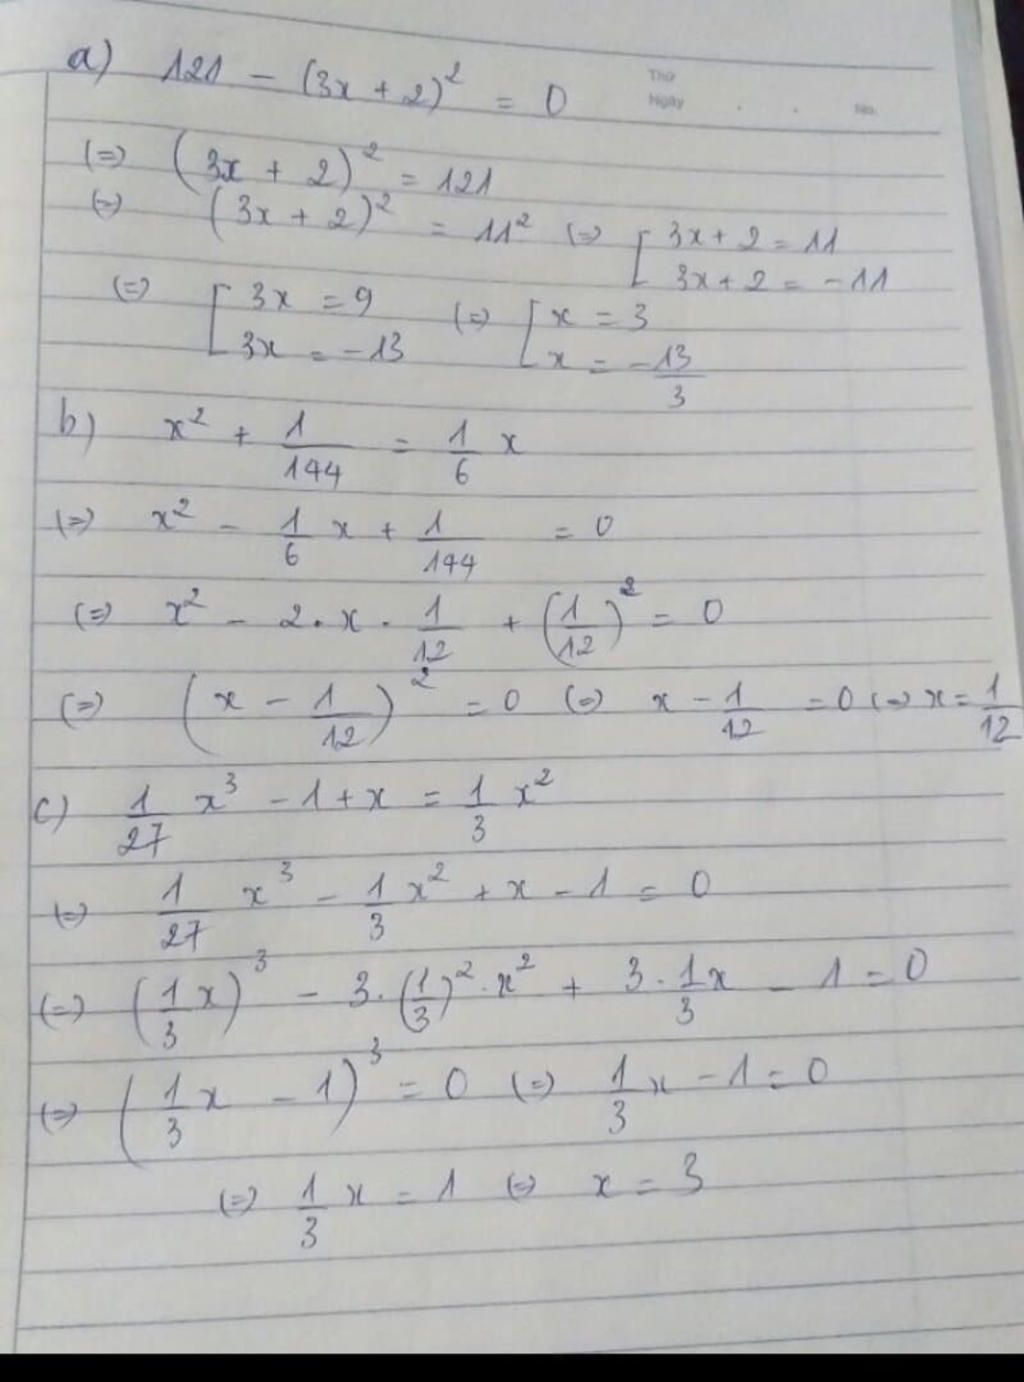 Thứ
Ngày . . No.
a) 121 - (3x + 2)² = 0
(=) (3x + 2)² = 121
(=) (3x + 2)² = 11² (=) [ 3x + 2 = 11
3x + 2 = -11
(=) [ 3x = 9 (=) [ x = 3
3x = -13 x = -13/3
b) x² + 1/144 = 1/6 x
(=) x² - 1/6 x + 1/144 = 0
(=) x² - 2 . x . 1/12 + (1/12)² = 0
(=) (x - 1/12)² = 0 (=) x - 1/12 = 0 (=) x = 1/12
c) 1/27 x³ - 1 + x = 1/3 x²
(=) 1/27 x³ - 1/3 x² + x - 1 = 0
(=) (1/3 x)³ - 3 . (1/3)² . x² + 3 . 1/3 x - 1 = 0
(=) (1/3 x - 1)³ = 0 (=) 1/3 x - 1 = 0
(=) 1/3 x = 1 (=) x = 3